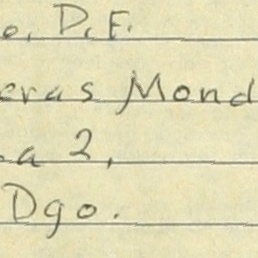 o. D.F.
eras Mond
a 2,
Dgo.